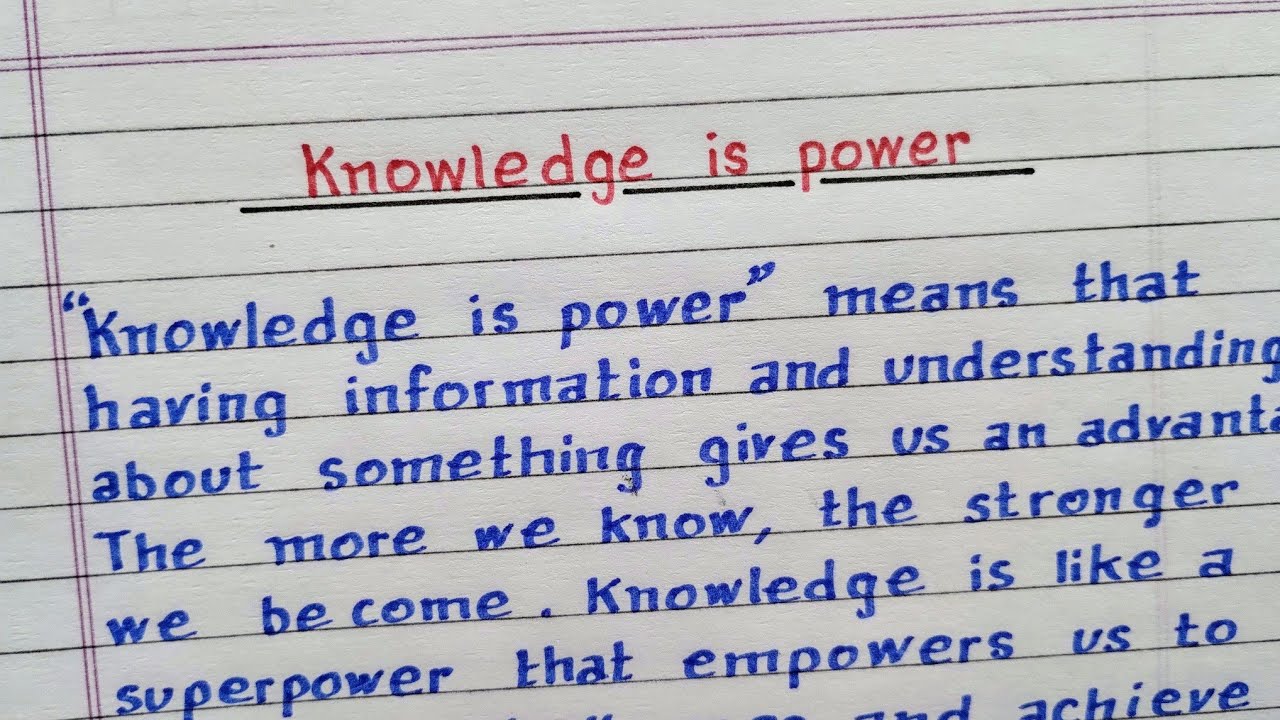 Knowledge is power
"Knowledge is power" means that
having information and understanding
about something gives us an advanta
The more we know, the stronger
we become. Knowledge is like a
superpower that empowers us to
and achieve